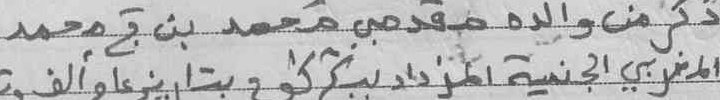 ذكر من والده مقدمي محمد بن فج محمد
المغربي الجنسية المزداد ببتركوح بتاريخ عام ألف و